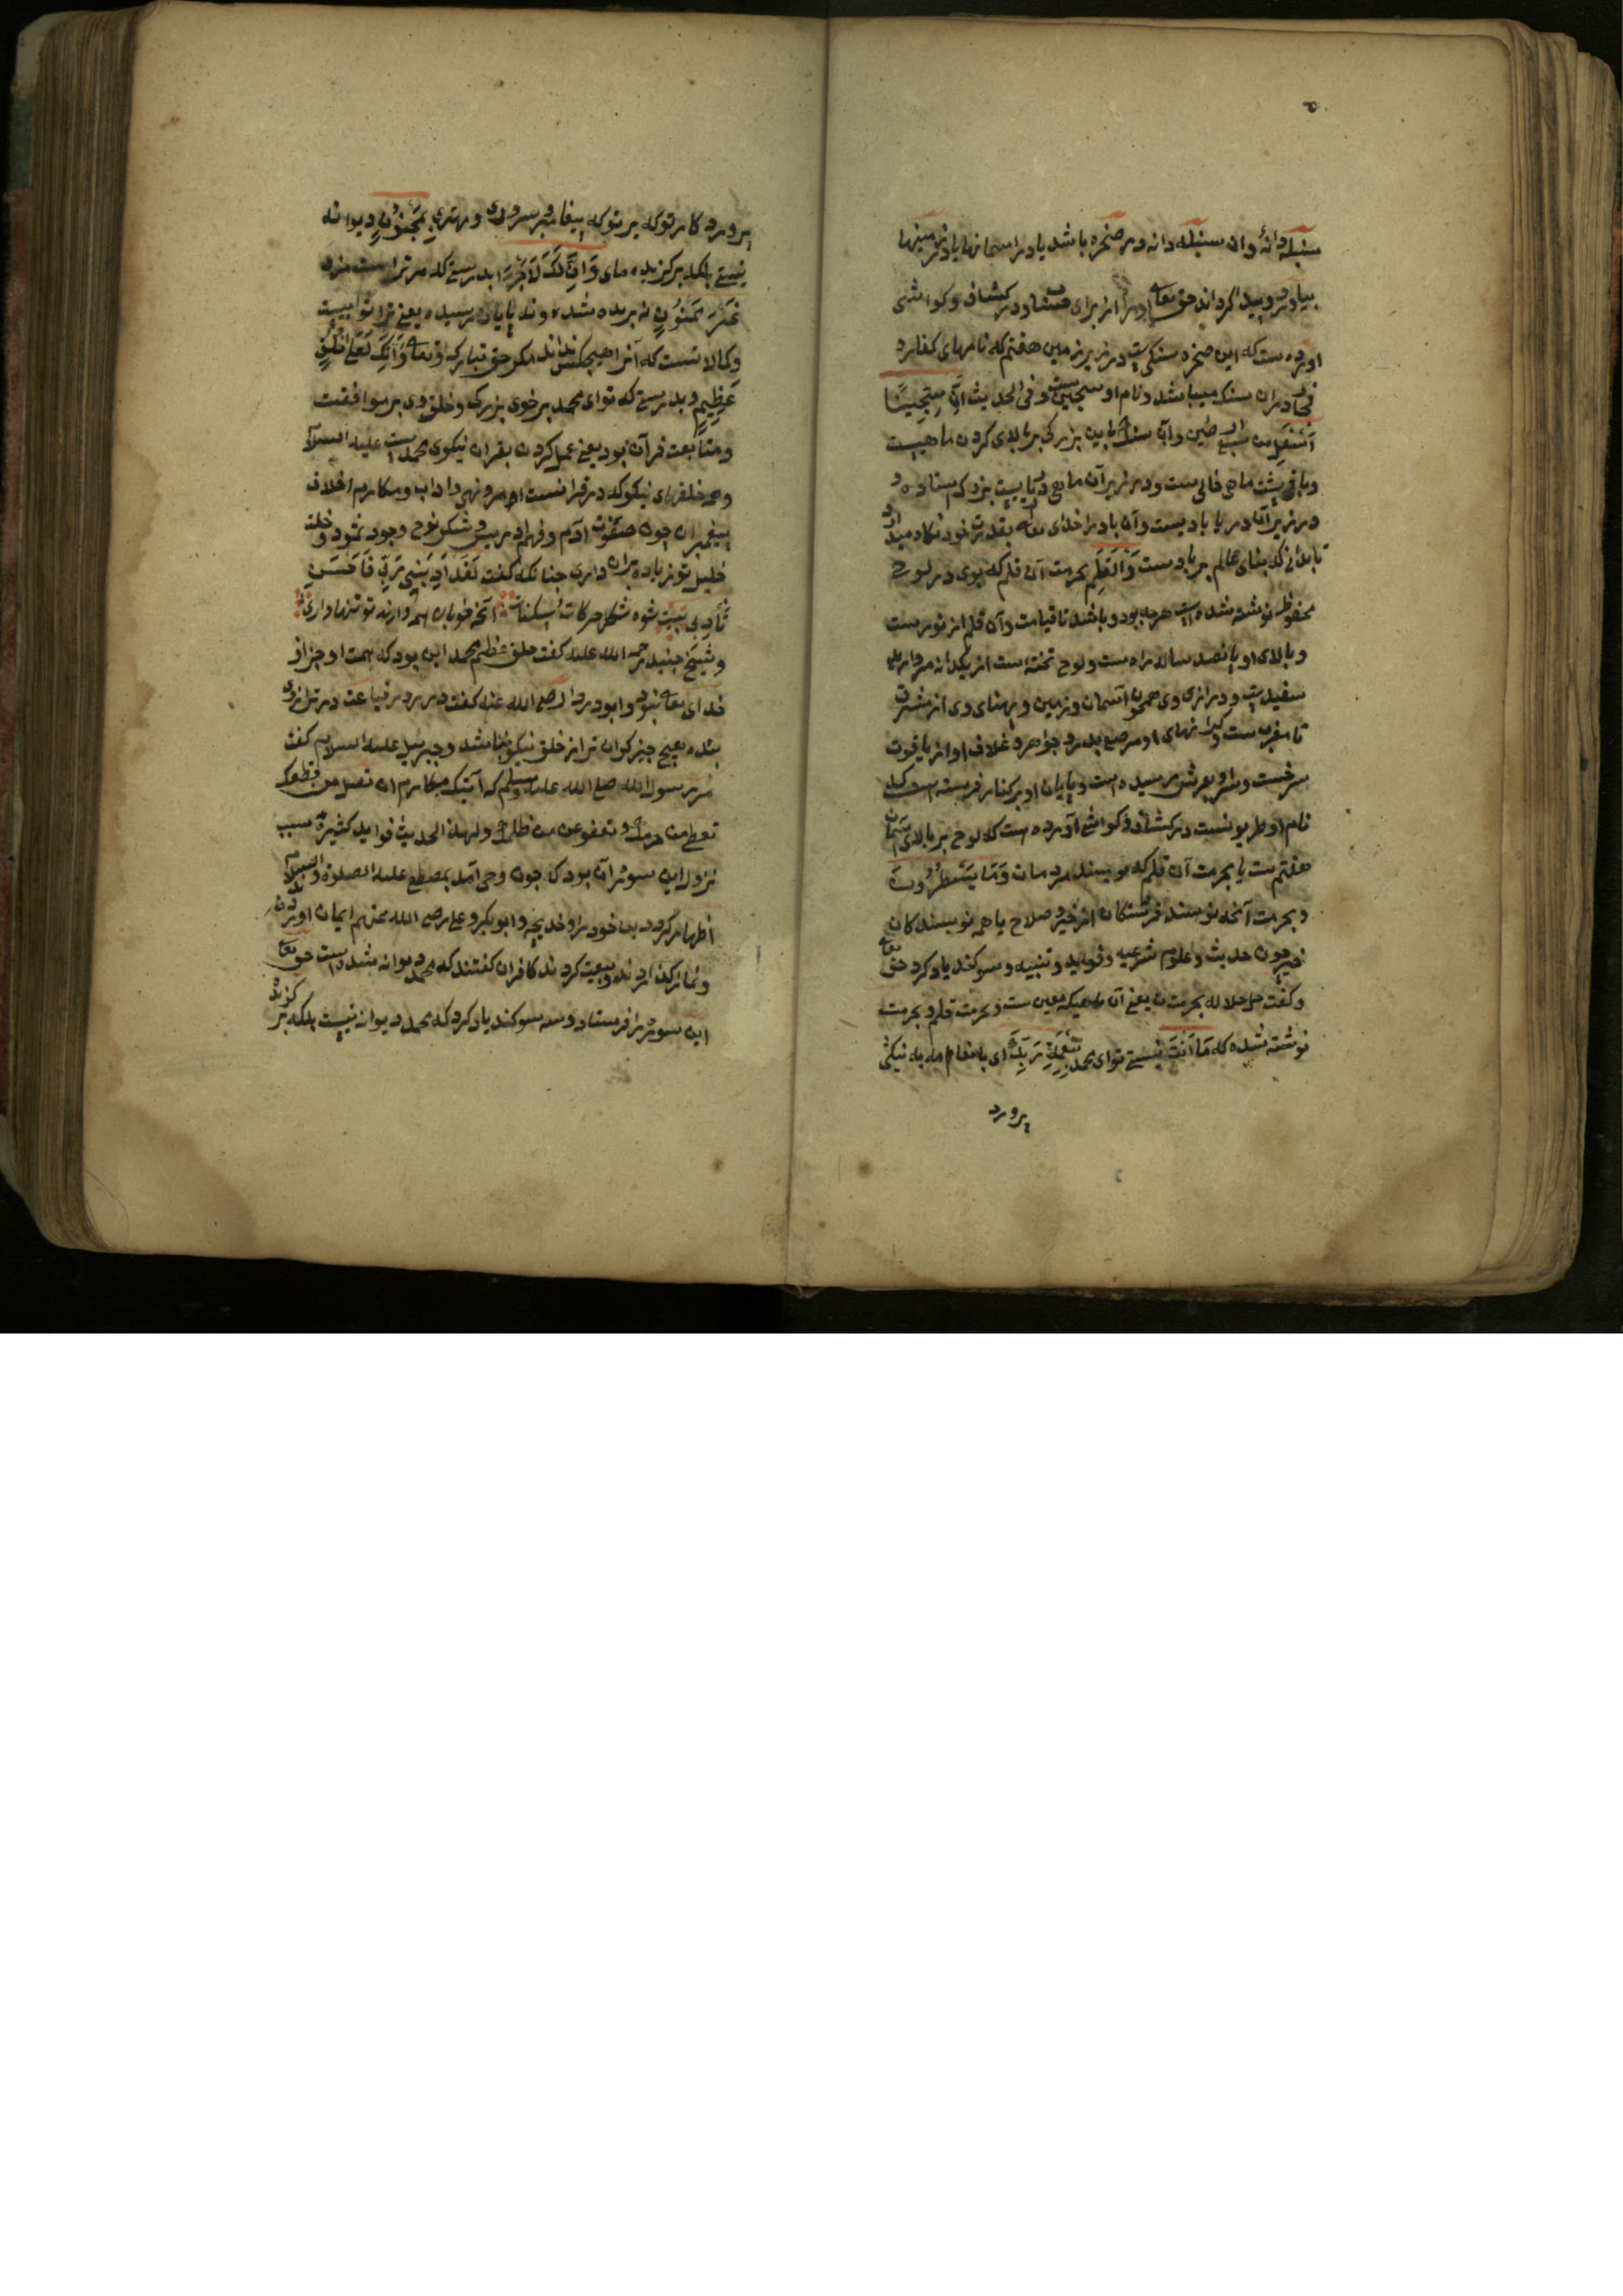 سنبله دانۀ وان سنبله دانه در صخره باشد یا در اسمانها یا در زمینها
بیاورد و پیدا کرداند حق تعالی اورا از برای و در کشاف وکواشی
اورده ست که این صخره سنکیست در زیر زمین هفتم که نامهای کفار و
فجار دران سنک میباشد و نام او سجین ست و فی الحدیث ان سجینا
اسفل من سبع ارضین وآن سنک باین بزرکی بر بالای کردن ماهیست
وباقی پشت ماهی خالی ست و در زیر آن ماهی دریاییست بزرک ستاده و
در زیر آن دریا بادیست وآن باد را خدای تعالی بقدرت خود نکاه میدارد
تا بدانی که بنای عالم بر بادست وَالْقَلَمِ بحرمت آن قلم که بوی در لوح
محفوظ نوشته شده است هرچه بود و باشد تا قیامت وآن قلم از نورست
وبالای او پانصد ساله راه ست ولوح تخته ست از یکدانه مروارید
سفیدست و درازی وی همچو آسمان و زمین و پهنای وی از مشرق
تا مغرب ست وکرانهای او مرصع بدر و جواهر و غلاف او از یاقوت
سرخست وسر او بعرش رسیده است و پایان او برکنار فرسته است که
نام او طریونست در کشاف وکواشی آورده ست که لوح بر بالای آسمان
هفتم ست یا بحرمت آن قلم که نویسند مردمان وَمَا يَسْطُرُونَ
و بحرمت آنچه نویسند فرشتکان از خیر و صلاح یا همه نویسندکان
خیر چون حدیث وعلوم شرعیه و فواید و تنبیه و سوکند یاد کرد حق تعالی
وکفت جل جلاله بحرمت ن یعنی آن ماهی که معین ست و بحرمت قلم و بحرمت
نوشته شده که مَا أَنْتَ نیستی تو ای محمد بِنِعْمَةِ رَبِّكَ ای بانعام به نیکی
پرورد
پروردکار تو که بر تو که پیغامبر و سروری و مهتری بِمَجْنُونٍ دیوانه
نیستی بلکه برکزیده مای وَإِنَّ لَكَ لَأَجْرًا بدرستی که مر تراست مزد
غَيْرَ مَمْنُونٍ نه بریده شده و نه پایان رسیده یعنی ترا ثوابیست
وکمالاتست که آنرا هیچکس نداند مکر حق تبارک وتعالی وَإِنَّكَ لَعَلَى خُلُقٍ
عَظِيمٍ و بدرستی که تو ای محمد بر خوی بزرک وخلق وی بر موافقت
ومتابعت قرآن بود یعنی عمل کردن بقران نیکوی محمدست علیه السلام
وهمه خلقهای نیکو که در قرانست امر و نهی و اداب و مکارم اخلاق
پیغمبران چون صفوت آدم و فهم ادریس و شکر نوح وجود هود و خلت
خلیل تو زیاده بران داری چنانکه کفت لَقَدْ أَدَّبَنِي رَبِّي فَأَحْسَنَ
تَأْدِيبِي بیت شیوه شکل حرکات سکنات آنچه خوبان همه دارند تو تنها داری
وشیخ جنید رحمه الله علیه کفت خلق عظیم محمد این بود که همت او جز از
خدای تعالی نبود وابودردا رضی الله عنه کفت در روز قیامت در ترازوی
بنده هیچ چیز کران تر از خلق نیکو نباشد و جبریل علیه السلام کفت
مر رسول الله صلی الله علیه وسلم که آتیتک بمکارم ان تصل من قطعک
تعطی من حرمک وتعفو عن من ظلمک ولهذا الحدیث فواید کثیرة سبب
نزول این سوره آن بود که چون وحی آمد بمصطفی علیه الصلوة والسلام
اظهار کرد دین خود را وخدیجه وابوبکر وعلی رضی الله عنهم ایمان اوردند
ونماز کذاردند و بیعت کردند کافران کفتند که محمد دیوانه شده است حق تعالی
این سوره را فرستاد و سه سوکند یاد کرد که محمد دیوانه نیست بلکه بر کزیده